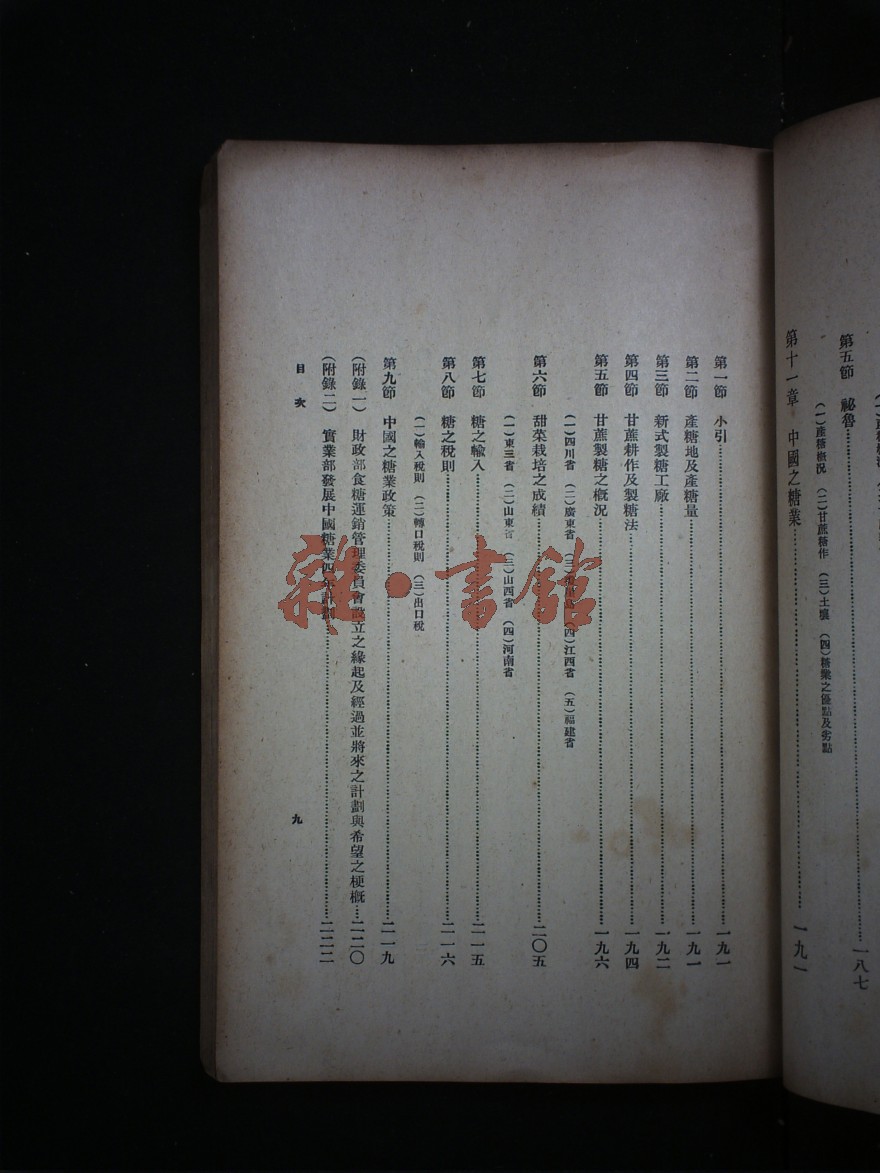 第五節　祕魯……一八七
（一）產糖概況　（二）甘蔗糖作　（三）土壤　（四）糖業之優點及劣點
第十一章　中國之糖業……一九一
第一節　小引……一九一
第二節　產糖地及產糖量……一九一
第三節　新式製糖工廠……一九二
第四節　甘蔗耕作及製糖法……一九四
第五節　甘蔗製糖之概況……一九六
（一）四川省　（二）廣東省　（三）　（四）江西省　（五）福建省
第六節　甜菜栽培之成績……二〇五
（一）東三省　（二）山東省　（三）山西省　（四）河南省
第七節　糖之輸入……二一五
第八節　糖之稅則……二一六
（一）輸入稅則　（二）轉口稅則　（三）出口稅
第九節　中國之糖業政策……二一九
（附錄一）　財政部食糖運銷管理委員會設立之緣起及經過並將來之計劃與希望之梗概……二二〇
（附錄二）　實業部發展中國糖業四年計劃……二二二
目次
九
雜·書館